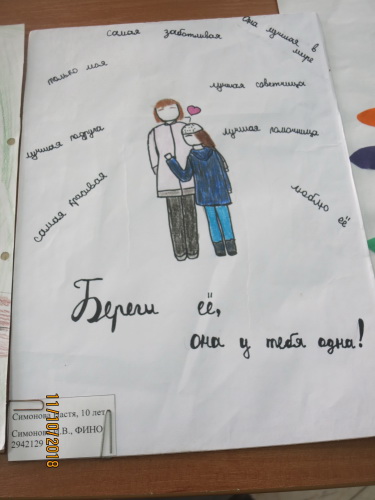 самая заботливая
Она лучшая в
мире
только моя
лучшая советчица
лучшая подруга
лучшая помощница
самая красивая
люблю её
Береги её,
она у тебя одна!
Симонова Настя, 10 лет
Симонова .В., ФИНО
2942129
11/10/2018